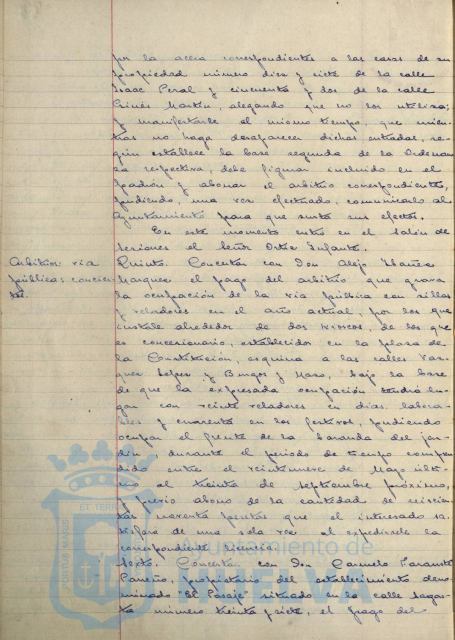 por la acera correspondientes a las casas de su
propiedad número diez y siete de la calle
Isaac Peral y cincuenta y dos de la calle
Ginés Martín, alegando que no los utiliza;
y manifestarle al mismo tiempo, que mien-
tras no haga desaparecer dichas entradas, se-
gún establece la base segunda de la Ordenan-
za respectiva, debe figurar incluido en el
padrón y abonar el arbitrio correspondiente,
pudiendo, una vez efectuado, comunicarlo al
Ayuntamiento para que surta sus efectos.
En este momento entra en el salón de
sesiones el Señor Ortiz Infante.
Arbitrios: vía
pública: concier-
tos.
Quinto. Concertar con Don Alejo Ibañez
Marquez el pago del arbitrio que grava
la ocupación de la vía pública con sillas
y veladores en el año actual, por los que
instale alrededor de dos kioscos, de los que
es concesionario, establecidos en la plaza de
la Constitución, esquina a las calles Vaz-
quez Lopez y Burgos y Mazo, bajo la base
de que la expresada ocupación tendrá lu-
gar con veinte veladores en días labora-
bles y cuarenta en los festivos, pudiendo
ocupar el frente de la baranda del jar-
din, durante el periodo de tiempo compren-
dido entre el veintinueve de Mayo últi-
mo al treinta de septiembre próximo,
y previo abono de la cantidad de seiscien-
tas noventa pesetas que el interesado sa-
tisfará de una sola vez al expedirsele la
correspondiente licencia.
Sexto. Concertar con Don Carmelo
propietario del establecimiento deno-
minado "El Pasaje" situado en la calle Sagas-
ta número treinta y siete, el pago del
Ayuntamiento de